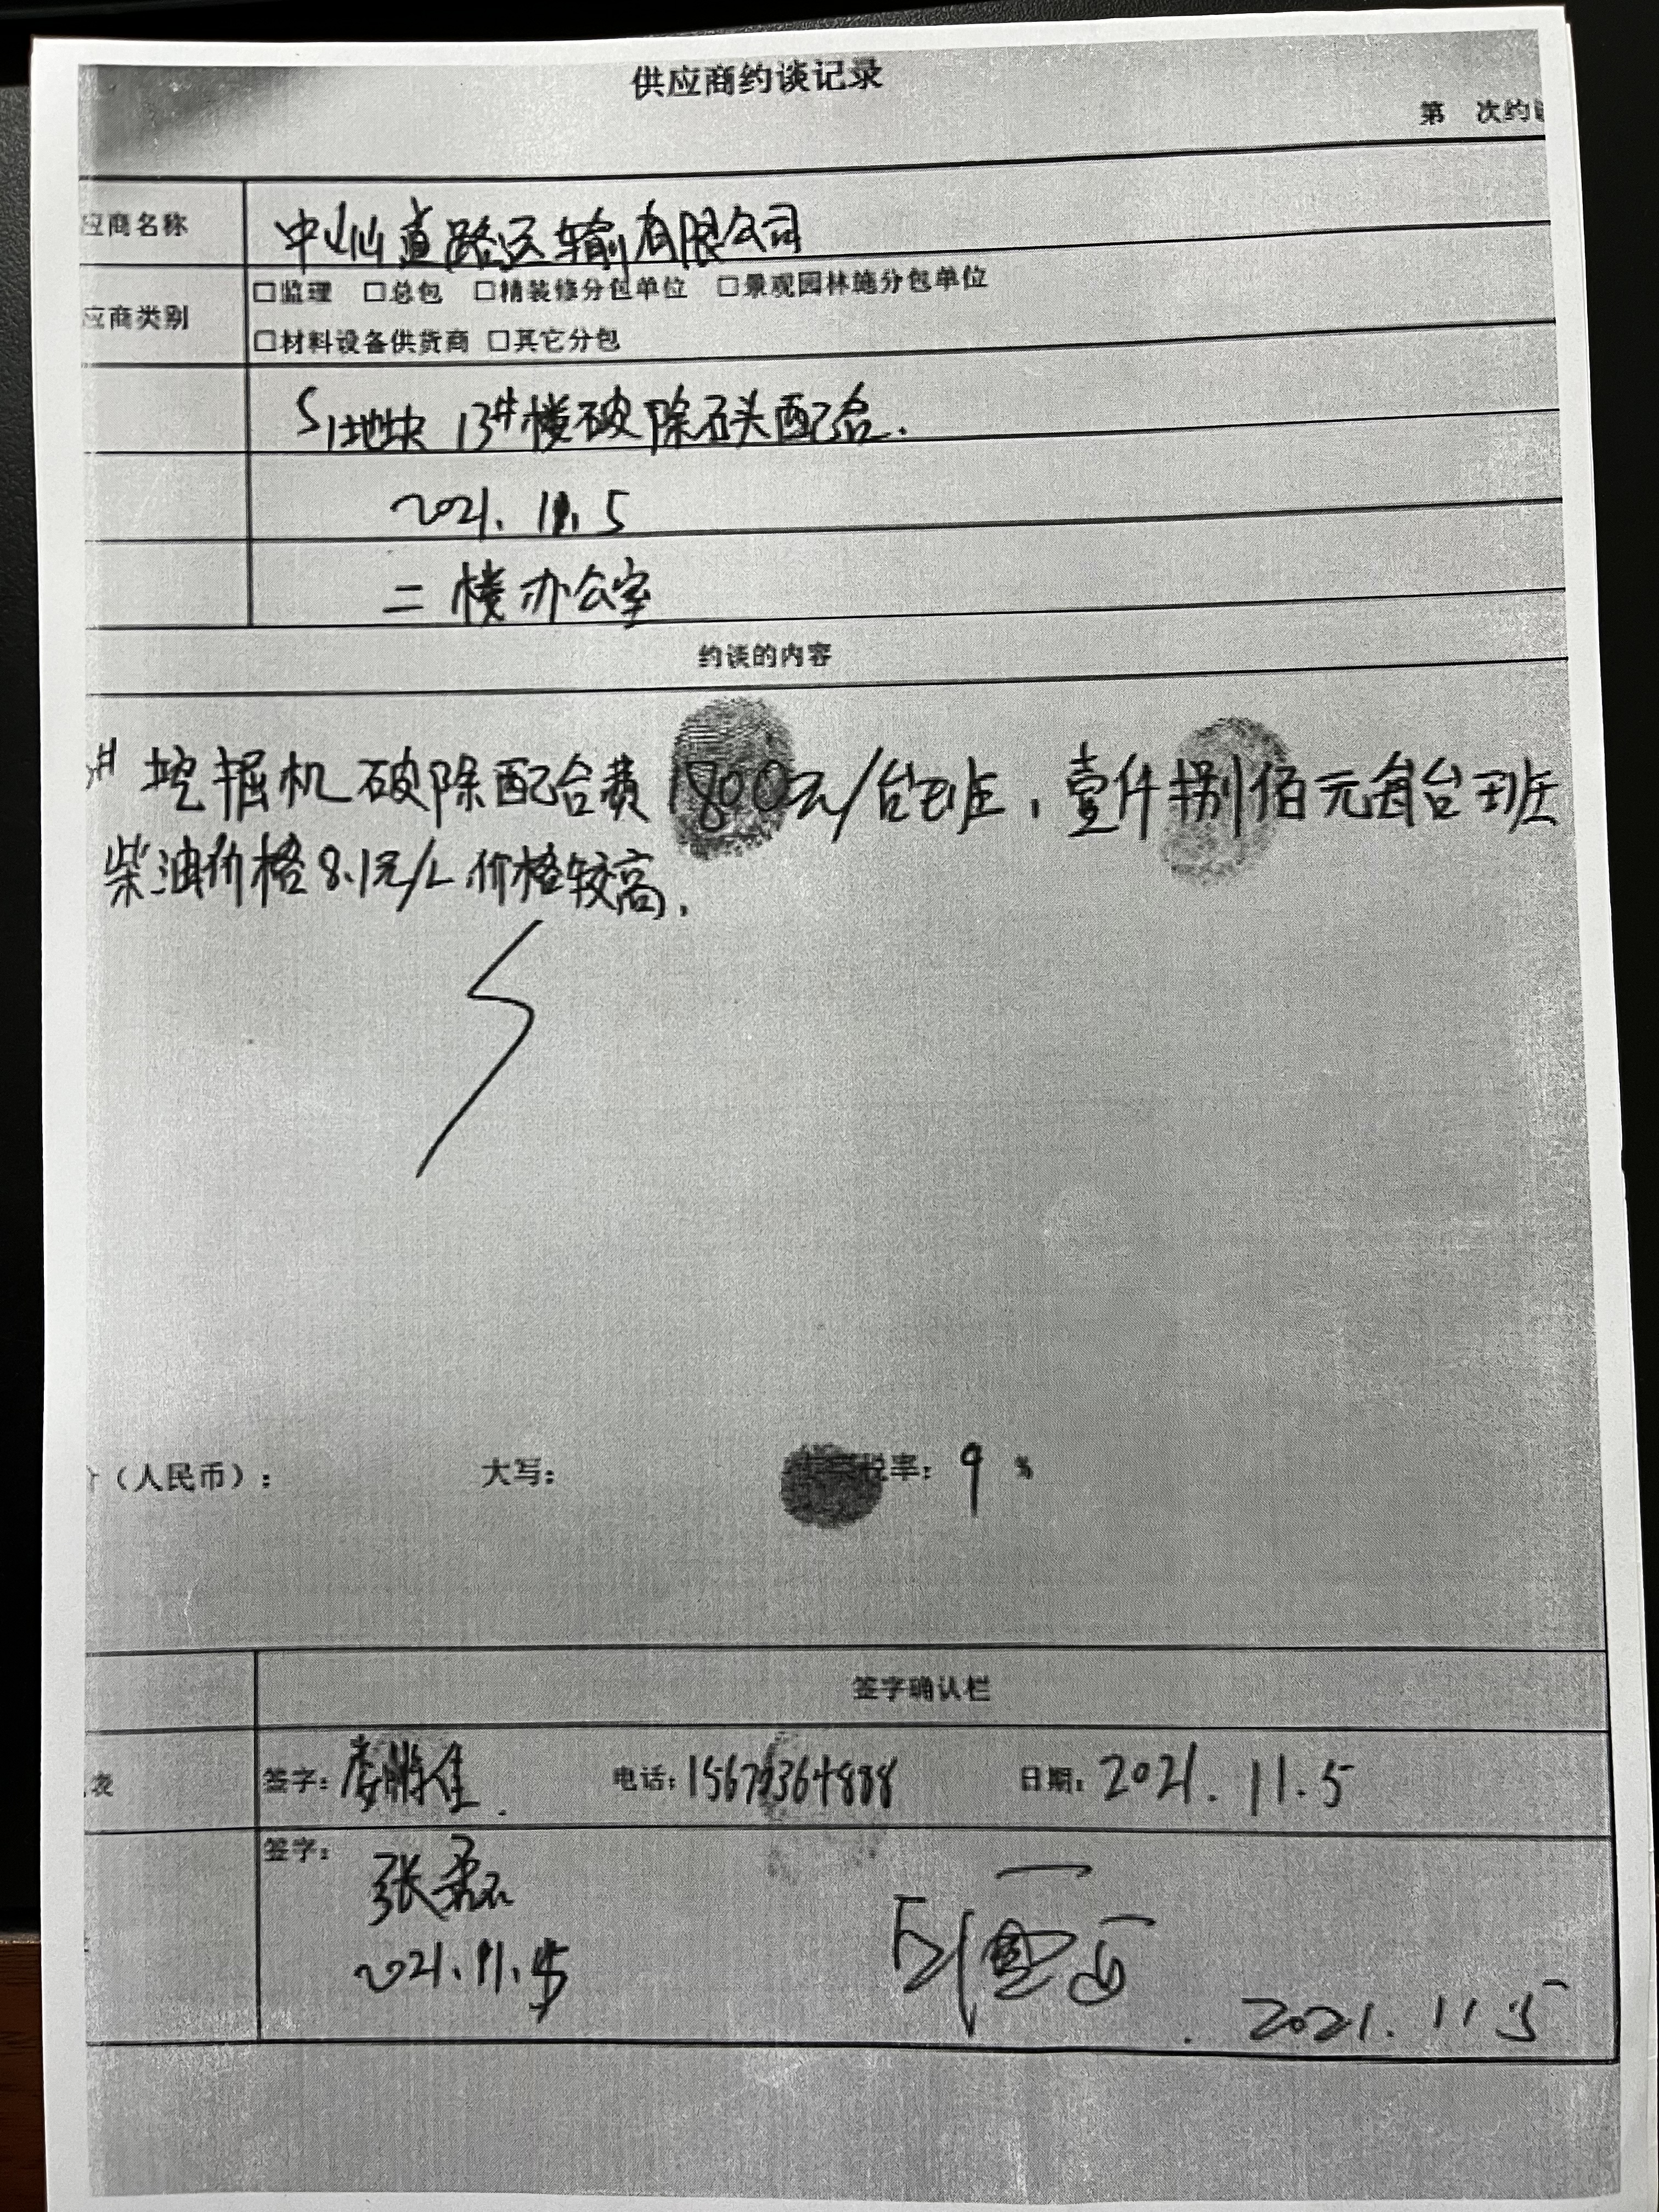 供应商约谈记录
第 次约
应商名称 中山仙道路运输有限公司
应商类别 □监理 □总包 □精装修分包单位 □景观园林施分包单位
□材料设备供货商 □其它分包
S1地块 13#楼破除石头配合.
2021.11.5
二楼办公室
约谈的内容
# 挖掘机破除配合费1800元/台班,壹仟捌佰元每台班
柴油价格8.1元/L,价格较高.
(人民币): 大写: 税率: 9 %
签字确认栏
表 签字: 电话: 日期: 2021.11.5
签字: 张磊
2021.11.5
2021.11.5